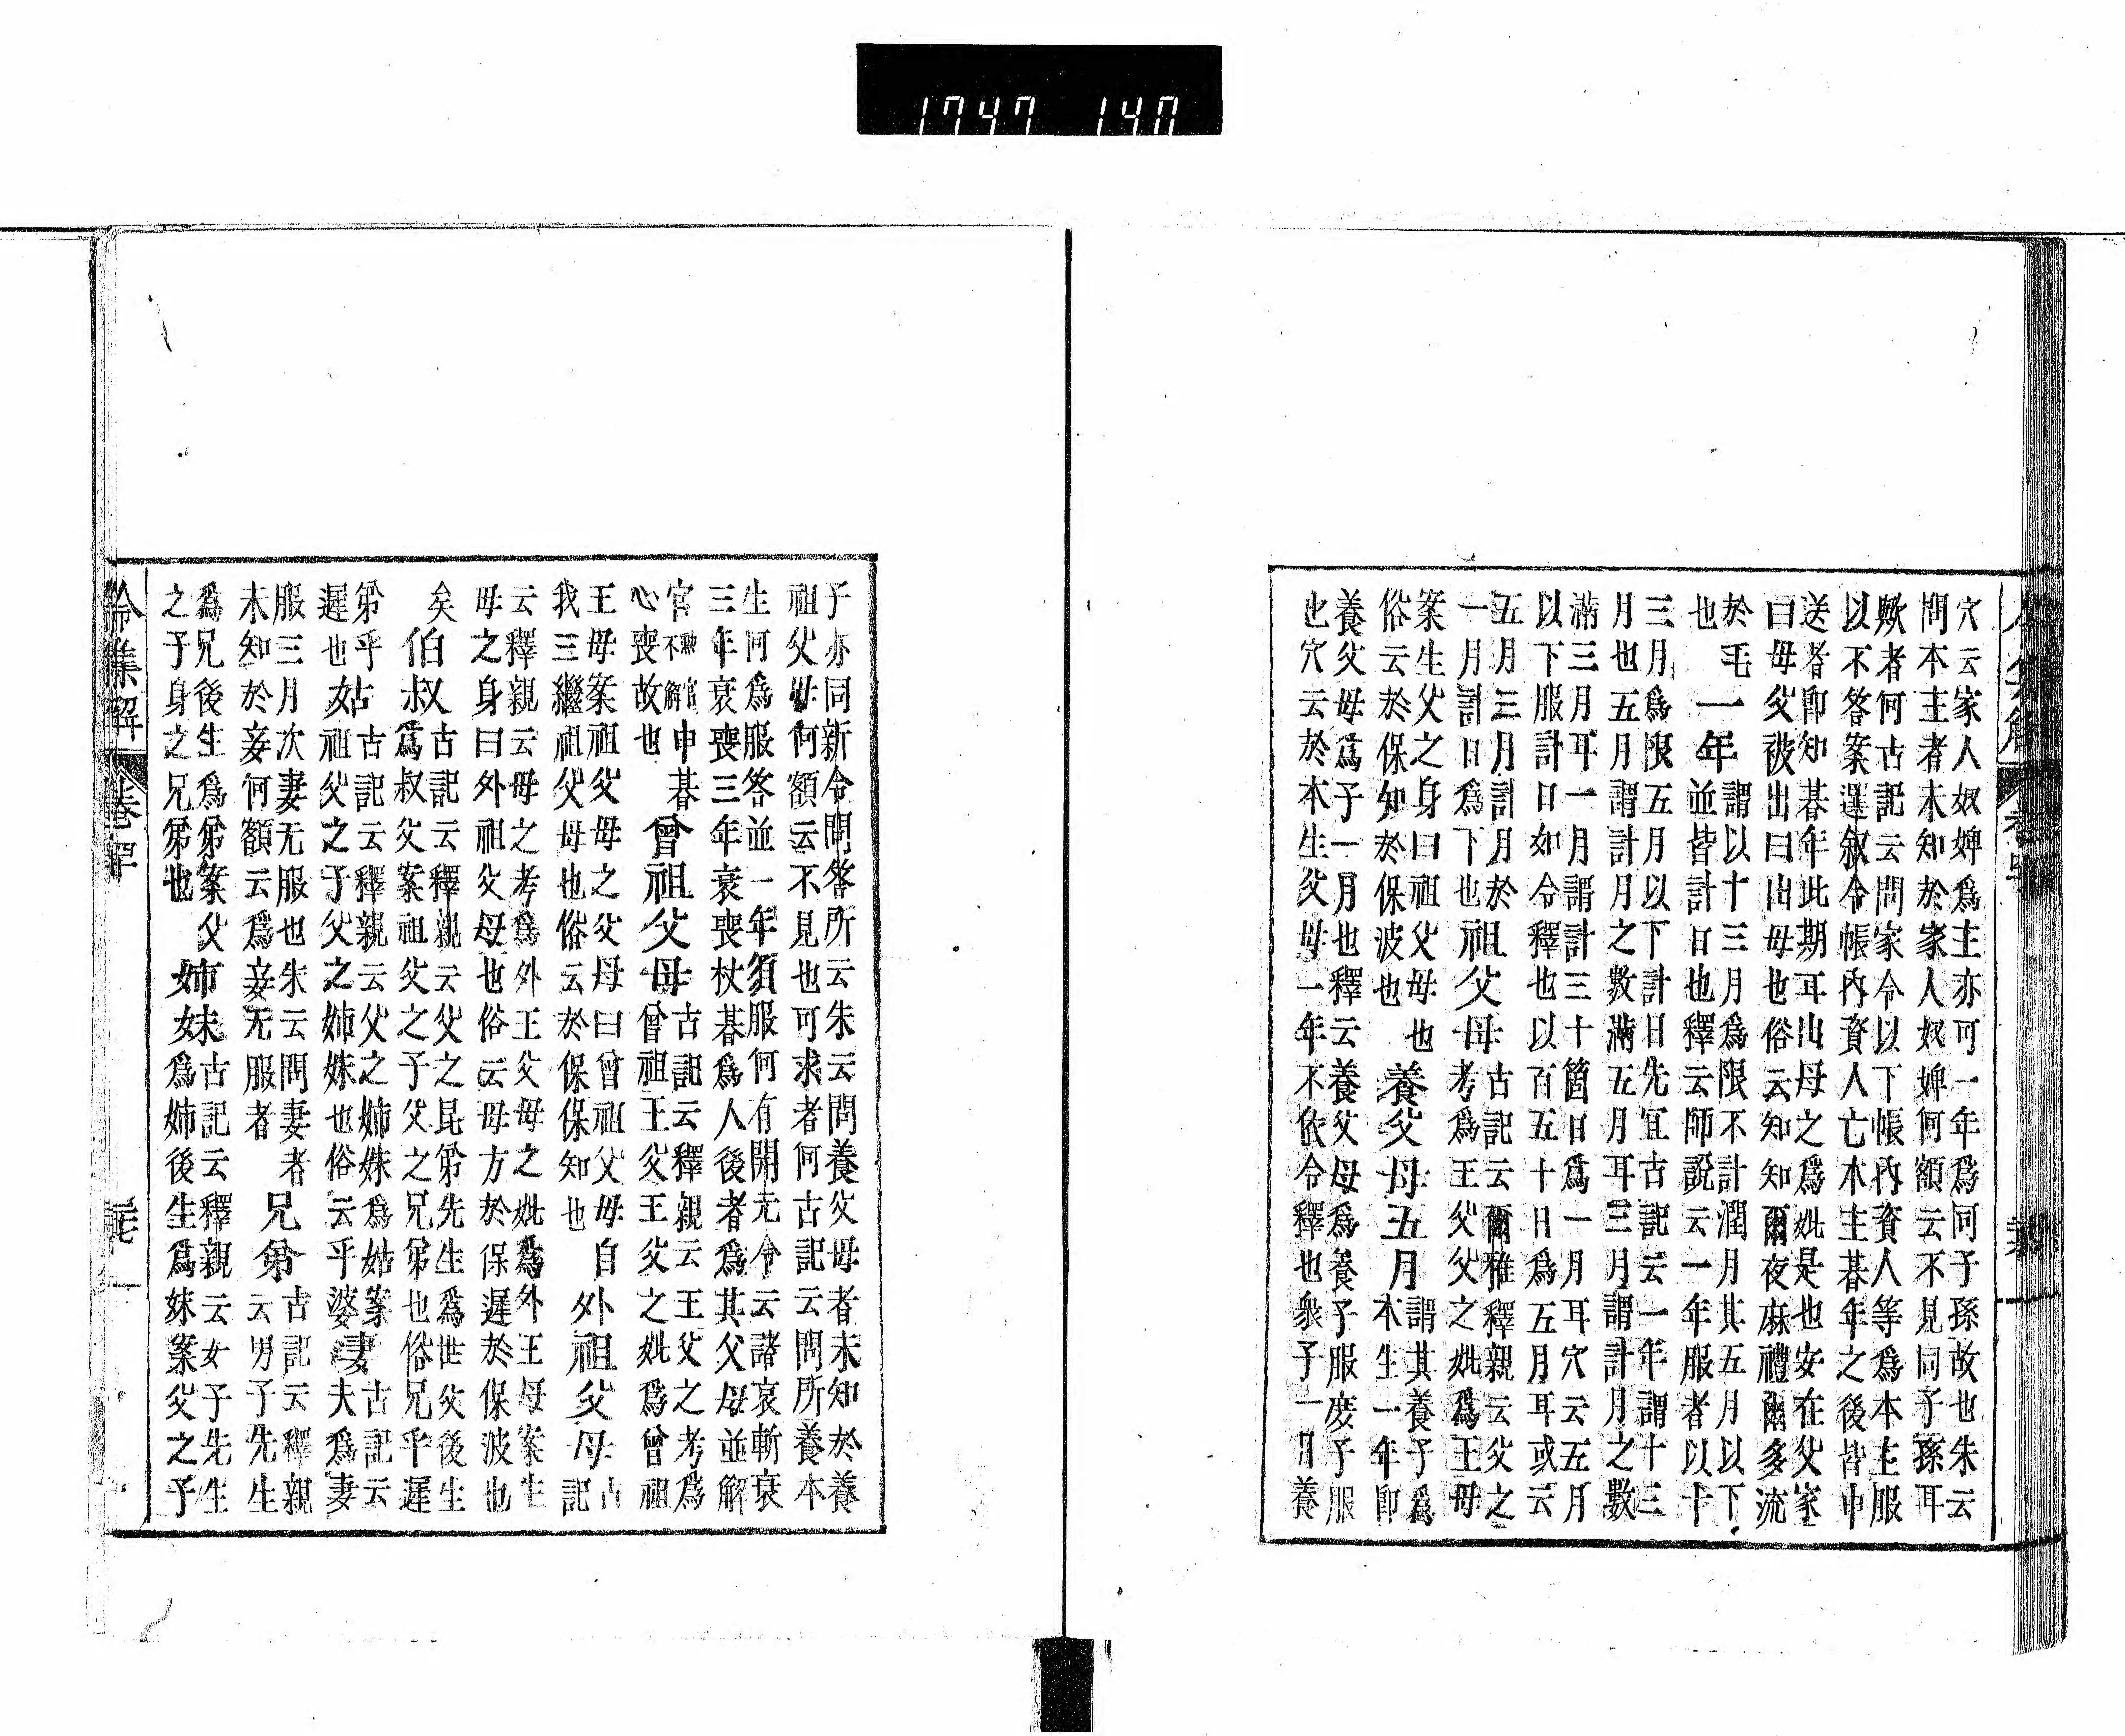 1747 140
穴云家人奴婢爲主亦可一年爲何子孫故也朱云
問本主者未知於家人奴婢何額云不見同子孫耳
歟者何古記云問家令以下帳內資人等爲本主服
以不答案選叙令帳內資人亡本主朞年之後皆申
送者卽知朞年此期耳出母之爲妣是也安在父家
曰母父被出曰出母也俗云知知爾夜麻禮爾多流
於毛
也
一年
謂以十三月爲限不計潤月其五月以下
並皆計日也釋云師說云一年服者以十
三月爲限五月以下計日先宜古記云一年謂十三
月也五月謂計月之數滿五月耳三月謂計月之數
滿三月耳一月謂計三十箇日爲一月耳穴云五月
以下服計日如令釋也以百五十日爲五月耳或云
五月三月計月於
一月計日爲下也
祖父母
古記云爾雅釋親云父之
考爲王父父之妣爲王母
案生父之身曰祖父母也
俗云於保知於保波也
養父母五月
謂其養子爲
本生一年卽
養父母爲子一月也釋云養父母爲養子服庶子服
也穴云於本生父母一年不依令釋也衆子一月養
子亦同新令問答所云朱云問養父母者未知於養
祖父母何額云不見也可求者何古記云問所養本
生何爲服答並一年須服何有開元令云諸哀斬衰
三年哀喪三年哀喪杖朞爲人後者爲其父母並解
官勲官不解申
心喪故也
朞
曾祖父母
古記云釋親云王父之考爲
曾祖王父王父之妣爲曾祖
王母案祖父母之父母曰曾祖父母自
我三繼祖父母也俗云於保保知也
外祖父母
古
記
云釋親云母之考爲外王父母之妣爲外王母案生
母之身曰外祖父母也俗云母方於保遲於保波也
矣
伯叔
古記云釋親云父之昆弟先生爲世父後生
爲叔父案祖父之子父之兄弟也俗兄乎遲
弟乎
遲也
姑
古記云釋親云父之姉妹爲姑案
祖父之子父之姉妹也俗云乎婆
妻
古記云
夫爲妻
服三月次妻无服也朱云問妻者
未知於妾何額云爲妾无服者
兄弟
古記云釋親
云男子先生
爲兄後生爲弟案父
之子身之兄弟也
姉妹
古記云釋親云女子先生
爲姉後生爲妹案父之子
令集解